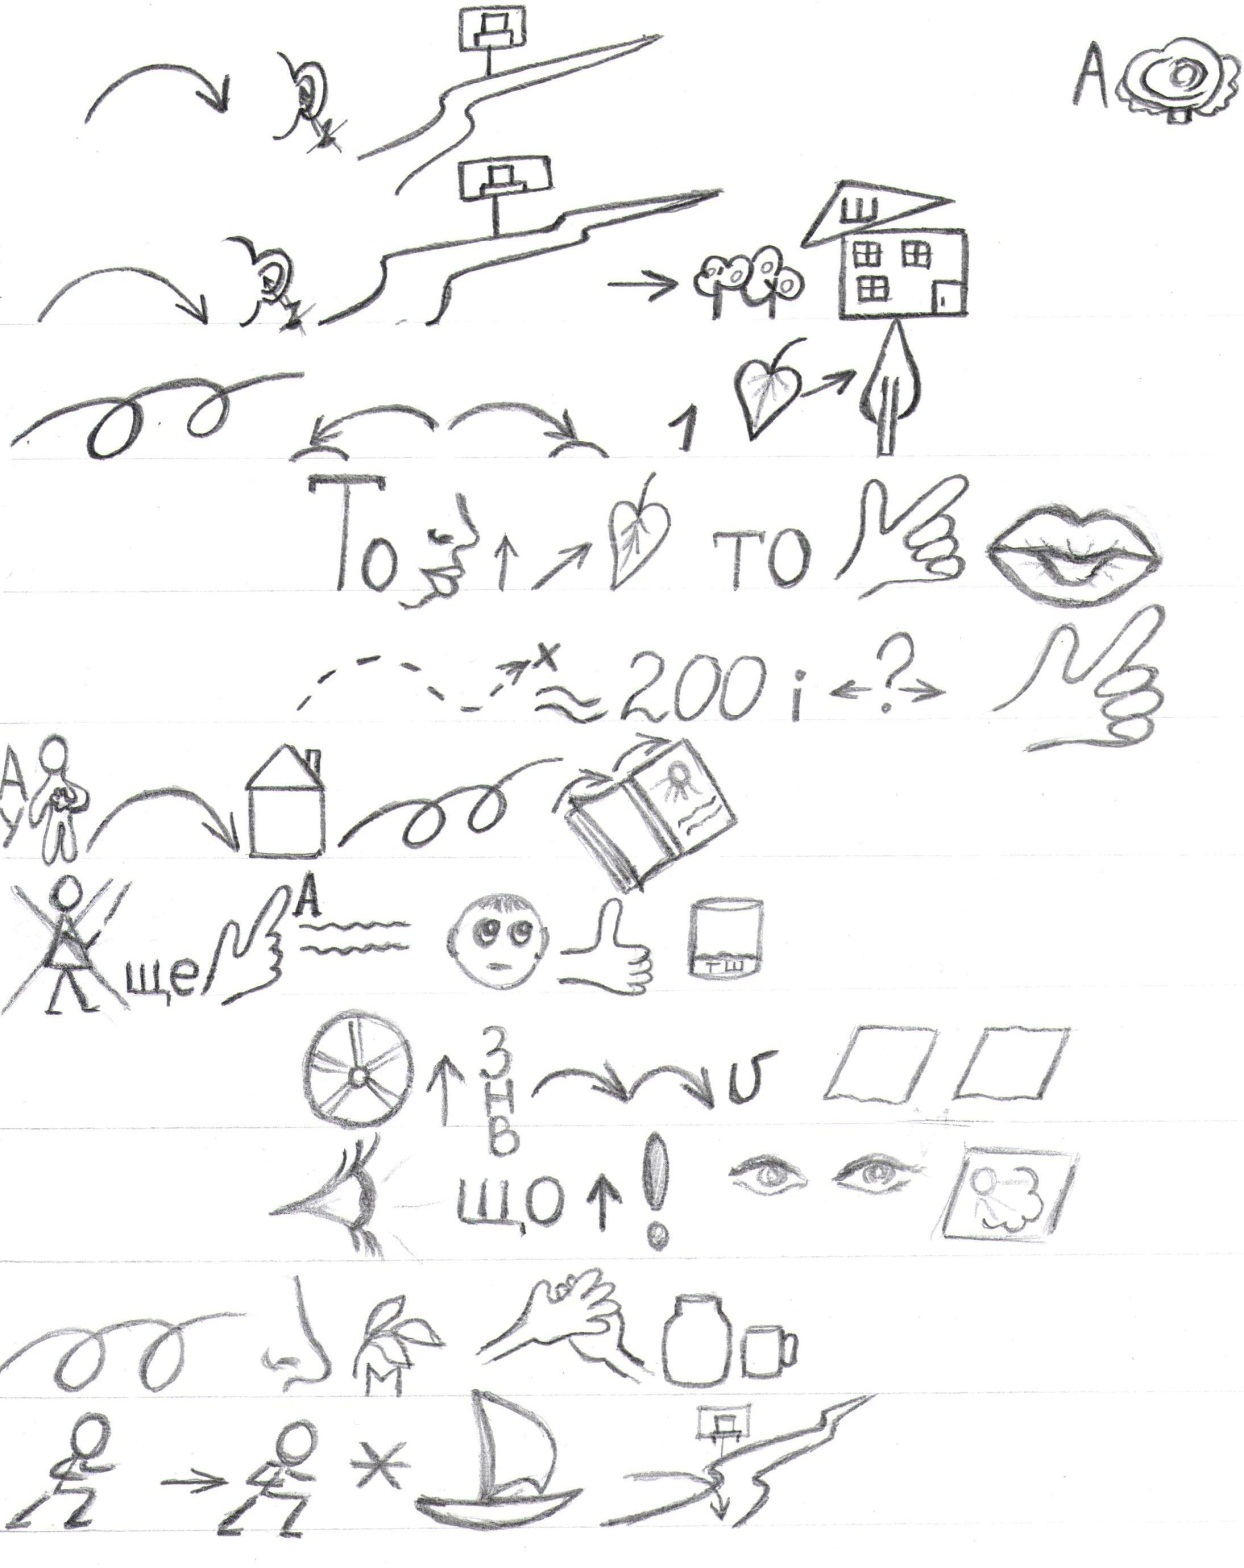 А
Ш
1
То ТО
≈ 200 і ?
А У
ще А ТШ
З Н В
що !
М